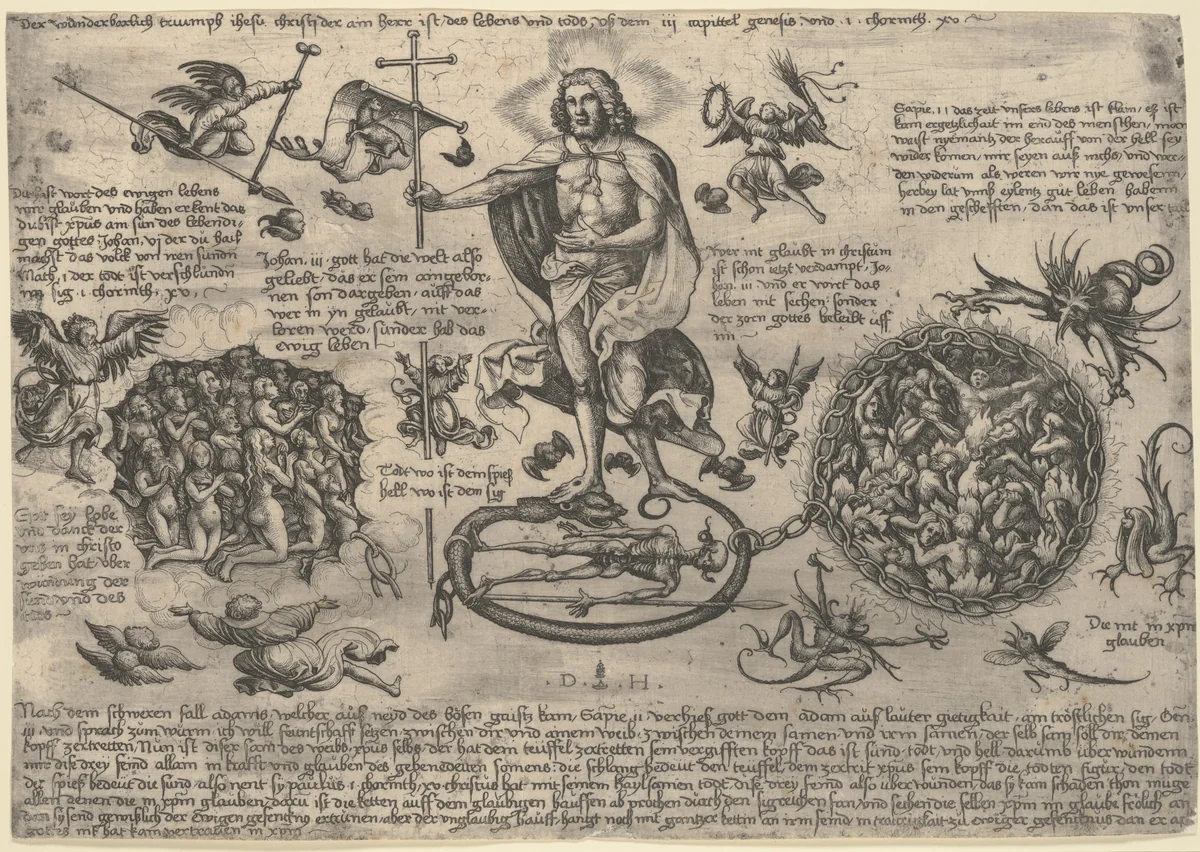 Der wunderbarlich triumph ihesu christj der ain herr ist des lebens vnd tods, vß dem iii capittel genesis, vnd .i. chorinth. xv
Du hast wort des ewigen lebens
wir glauben vnd haben erkent das
du bist xp̄us ain sun des lebendi-
gen gottes Johan, vj der du hail
machst das volck von iren sunden
Math, i der todt ist verschlunden
im sig .i. chorinth, xv,
Johan, iii, gott hat die welt also
geliebt, das er sein aingebor-
nen son dargeben, auff das
wer in yn gelaubt, nit ver-
loren werd, sunder hab das
ewig leben
Sapie, ii das zeit vnsers lebens ist klain, es ist
kain ergetzlichait im end des menschen, man
weist nyemantz der herauff von der hell sey
wider komen, wir seyen auß nichs, vnd wer-
den widerum als weren wir nye gewesenn,
herbey lat vnnß eylentz gut leben habenn
in den geschefften, dan das ist vnser tail
Wer nit glaubt in christum
ist schon ietzt verdampt, Jo-
han. iii vnd er wirt das
leben nit sechen, sonder
der zorn gottes beleibt uff
im
Todt wo ist dein spieß
hell wo ist dein sig
sey lobe
vnd danck der
vns in christo
geben hat vber
windung der
sund vnd des
Die nit in xp̄m
glauben
D H
Nach dem schweren fall adams, welcher auß neyd des bösen gaistz kam, Sapie, ii verhieß gott dem adam auß lauter gietigkait, ain tröstlichen sig, Gen
iii vnd sprach zum wurm, ich will feintschafft setzen, zwischen dir vnd ainem weib, zwischen deinem samen vnd irm samen, der selb sam soll dir, deinen
kopff zertretten, Nun ist diser sam des weibs, xp̄us selbs, der hat dem teuffel zertretten sein vergifften kopff das ist sund, todt, vnd hell darumb überwundenn
wir dise drey feind allain in krafft vnd glauben des gebenedeten somens: die schlang bedeut den teuffel, dem zertrit xp̄us sein kopff die todten figur, den todt
der spieß bedeut die sund, also nent sy paulus, i chorinth, xv, christus hat mit seinem haylsamen todt, dise drey feind also überwunden, das sy kain schaden thon muge
allen denen die in xp̄m glauben, daru ist die ketten auff dem glaubigen hauffen ab prochen durch den sigreichen fan, vnd sechen die selben xp̄m im glaube frölich an
dan sy send gewißlich der ewigen gefencknus entrunen, aber der vnglaubig hauff, hangt noch mit gantzer kettin an irm feind in trawrigkait zu ewiger gefencknus dan er an
gottes nit hat kain vertrawen in xp̄m